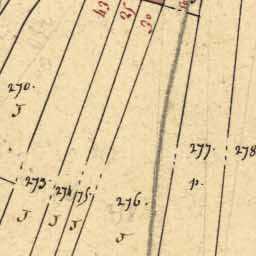 43
25
30
270.
T
277.
278
p.
273
274
275.
276.
T
T
T
T